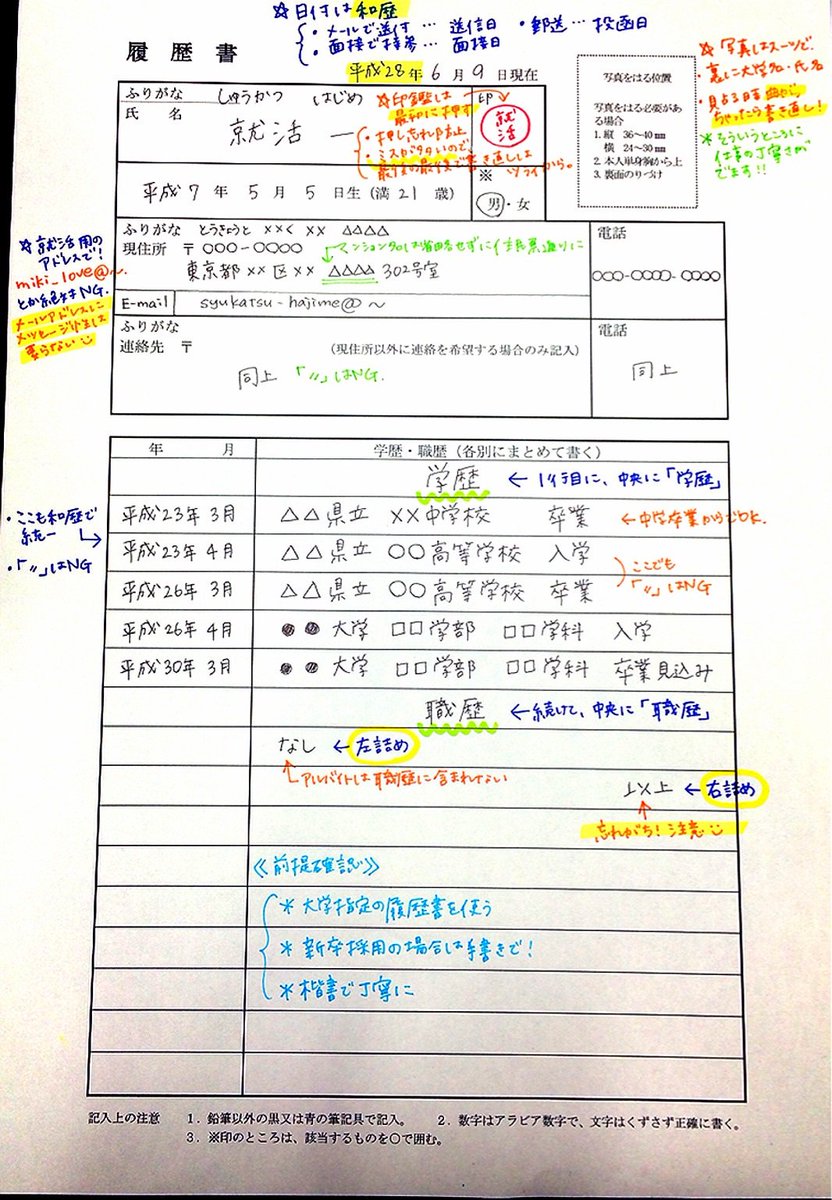 ☆日付は和歴
・メールで送付…送信日 ・郵送…投函日
・面接で持参…面接日
履歴書
平成28年6月9日現在
ふりがな しゅうかつ はじめ
氏名 就活 一
印
就活
☆印鑑は
最初に押す
・押し忘れ防止
・ミスがタタいので、
最後の最後で書き直しは
ツライから。
平成7年5月5日生(満21歳)
※
男・女
写真をはる位置
写真をはる必要がある場合
1. 縦 36〜40㎜
横 24〜30㎜
2. 本人単身胸から上
3. 裏面のりづけ
☆写真はスーツで。
・裏に大学名・氏名
・見占る時曲がっちゃったら書き直し!
*そういうところに
仕事の丁寧さが
でます!!
ふりがな とうきょうと ××く ×× △△△△
現住所 〒 ○○○-○○○○
←マンション名は省略せずに住民票通りに
東京都××区×× △△△△ 302号室
電話
○○○-○○○○-○○○○
E-mail syukatsu-hajime@〜
☆就活用の
アドレスで!
miki_love@〜
とか絶対NG.
メールアドレスに
メッセージ性は
要らない
ふりがな
連絡先 〒 (現住所以外に連絡を希望する場合のみ記入)
同上 「〃」はNG.
電話
同上
年 月 学歴・職歴(各別にまとめて書く)
学歴 ←1行目に、中央に「学歴」
平成23年3月 △△県立 ××中学校 卒業 ←中学卒業からでOK.
平成23年4月 △△県立 ○○高等学校 入学
平成26年3月 △△県立 ○○高等学校 卒業
ここでも
「〃」はNG
・ここも和歴で
統一
・「〃」はNG
平成26年4月 ●●大学 □□学部 □□学科 入学
平成30年3月 ●●大学 □□学部 □□学科 卒業見込み
職歴 ←続けて、中央に「職歴」
なし ←左詰め
アルバイトは職歴に含まれない
以上 ←右詰め
忘れがち!注意
《前提確認》
*大学指定の履歴書を使う
*新卒採用の場合は手書きで!
*楷書で丁寧に
記入上の注意 1. 鉛筆以外の黒又は青の筆記具で記入。 2. 数字はアラビア数字で、文字はくずさず正確に書く。
3. ※印のところは、該当するものを○で囲む。